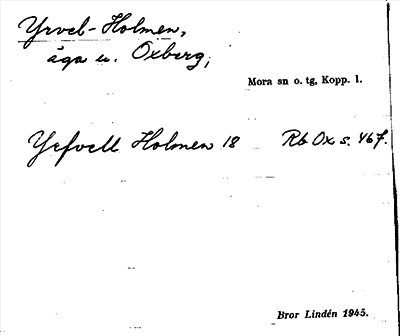 Yrvel-Holmen,
äga u. Oxberg;
Mora sn o. tg, Kopp. l.
Yrfvell Holmen 18 Rb Ox s. 467.
Bror Lindén 1945.